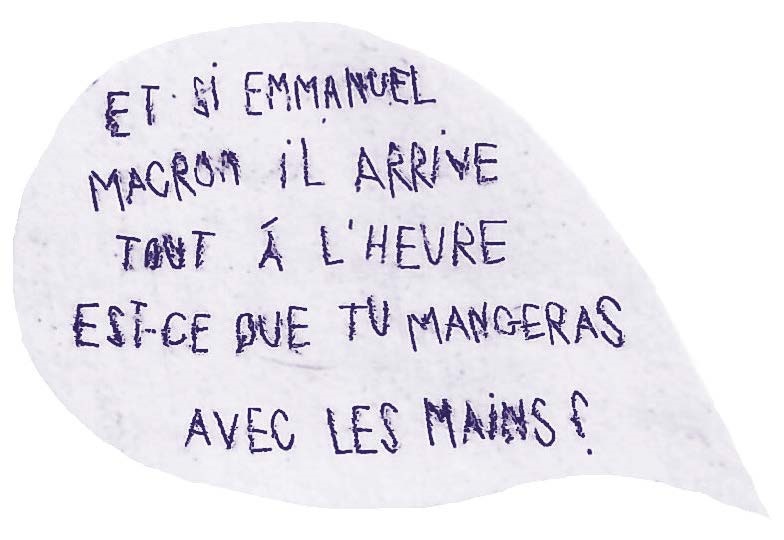 ET SI EMMANUEL
MACRON IL ARRIVE
TOUT Á L'HEURE
EST-CE QUE TU MANGERAS
AVEC LES MAINS ?